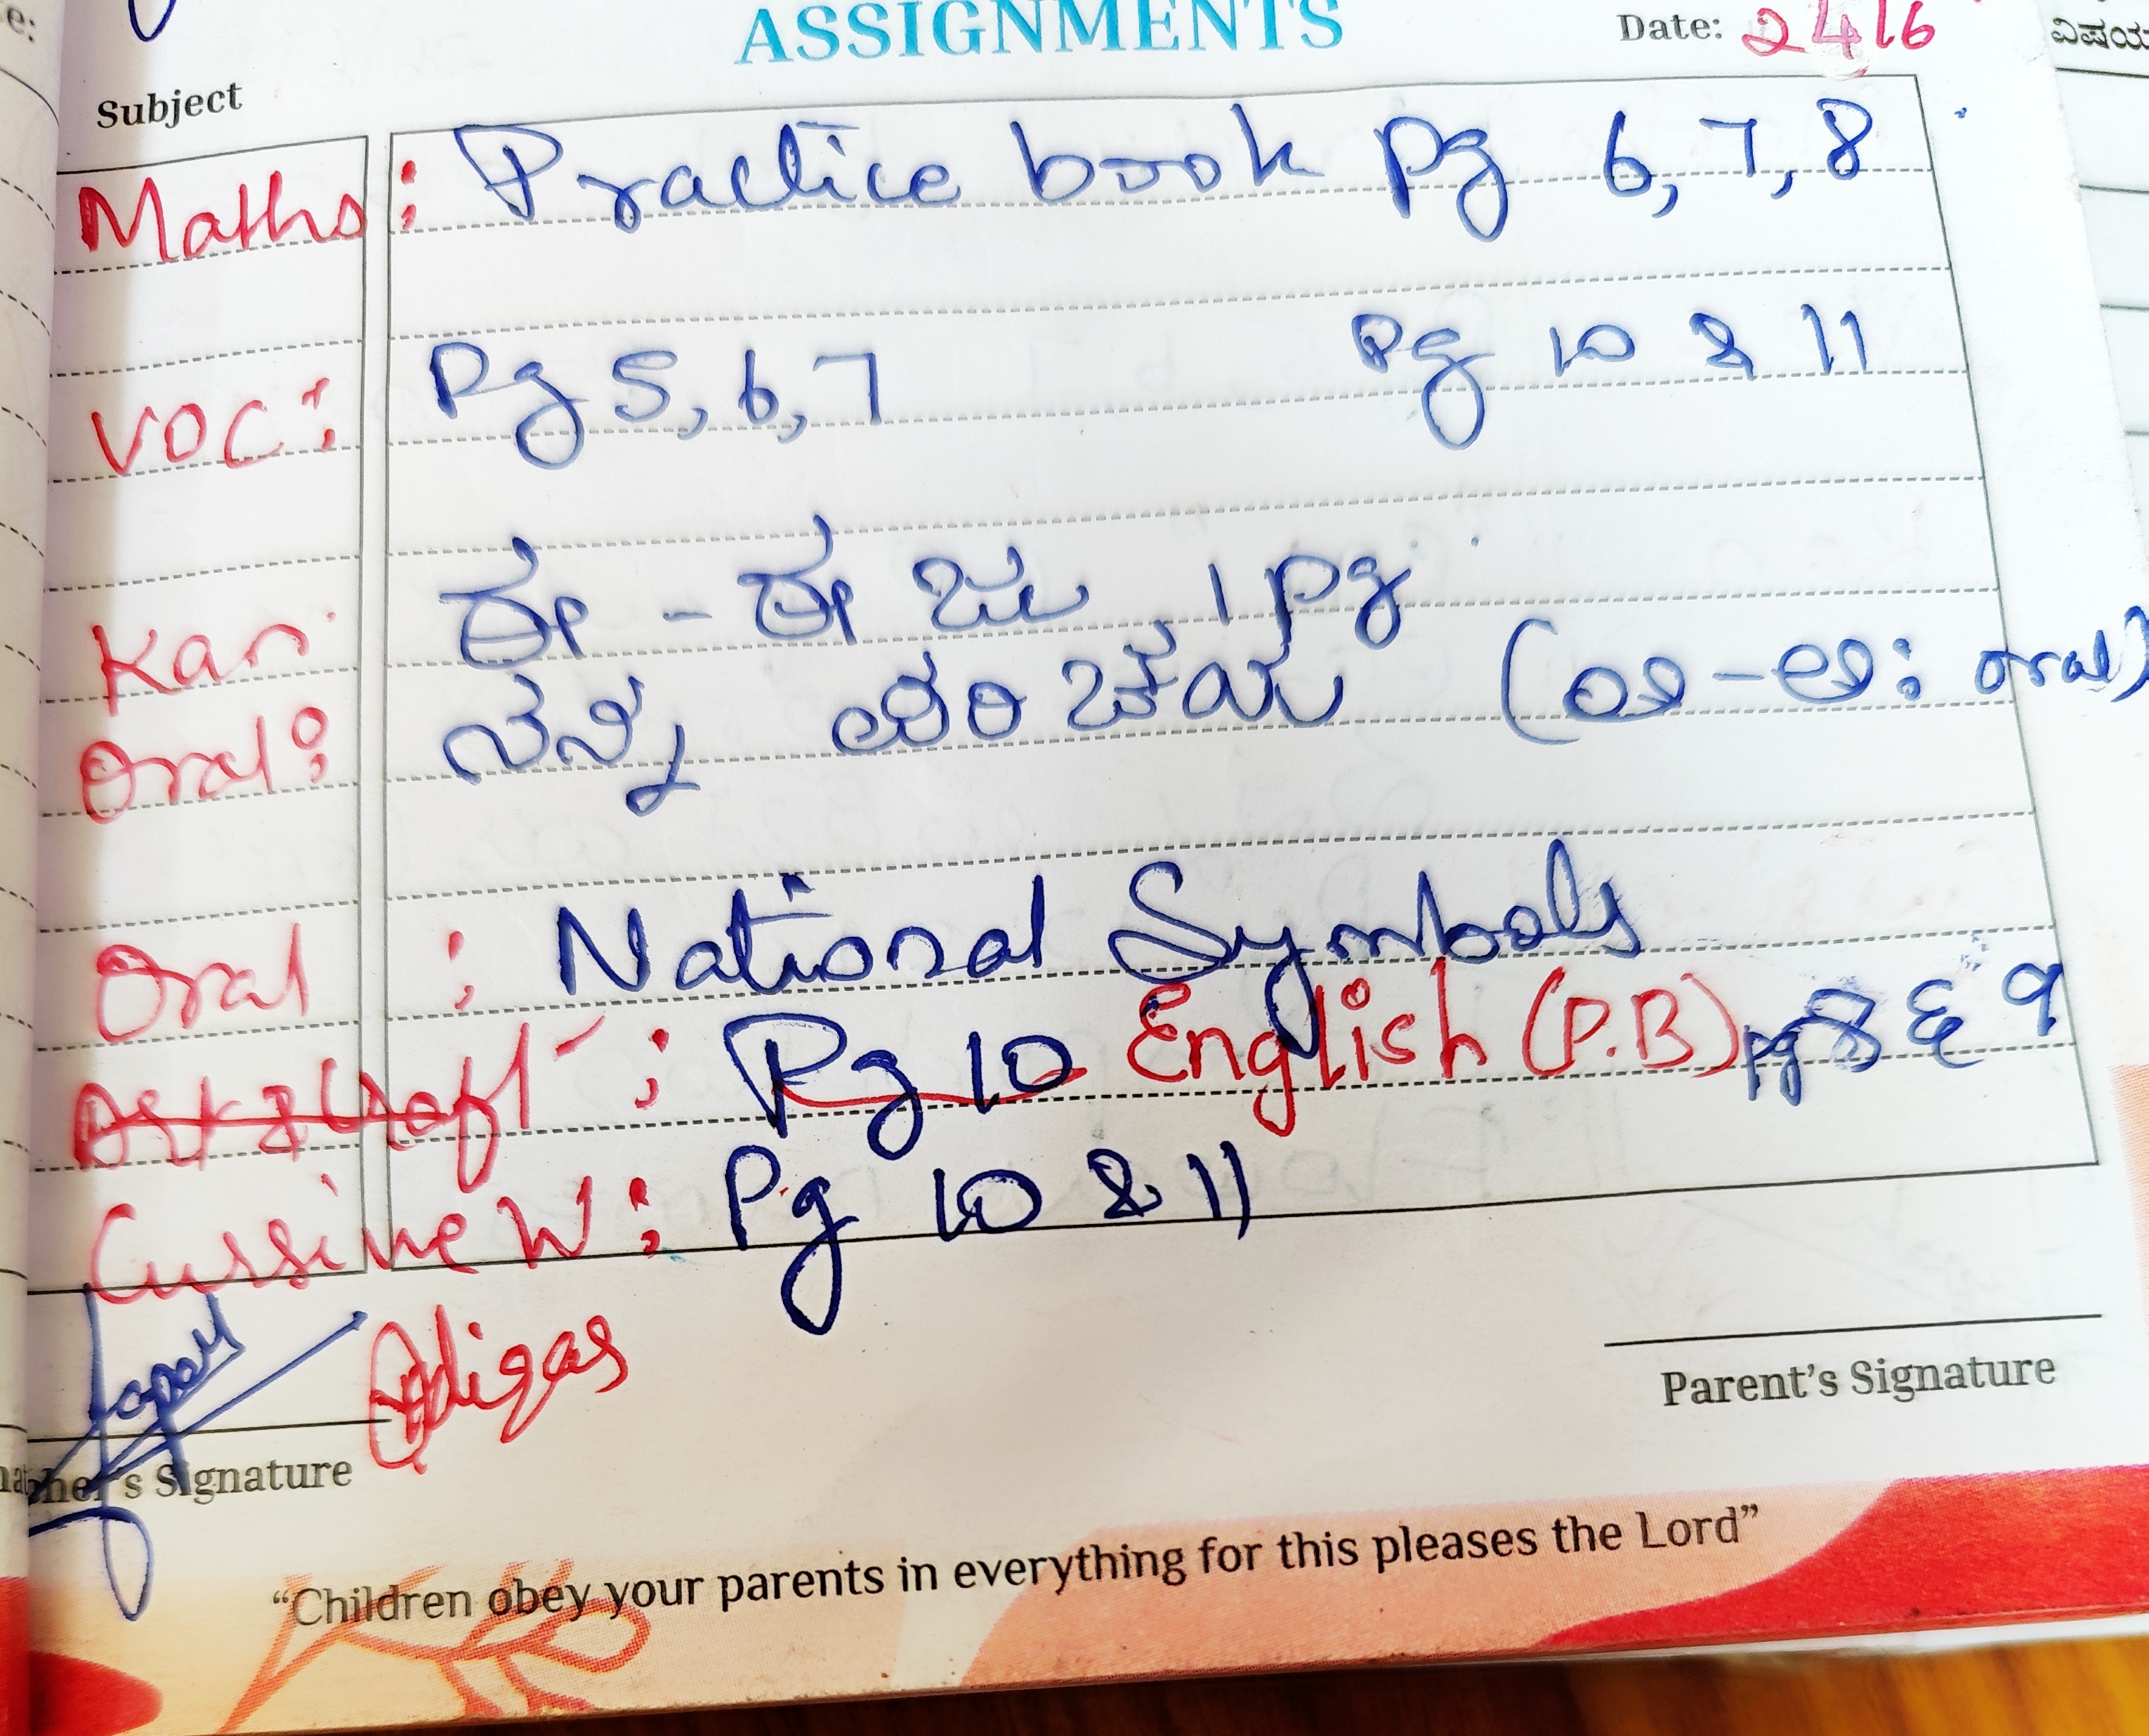 ASSIGNMENTS
Date: 24/6
ವಿಷಯ
Subject
Maths: Practice book Pg 6, 7, 8
VOC: Pg 5, 6, 7 Pg 10 & 11
Kan. ಈ - ಈ ಜು 1 pg
Oral: ನನ್ನ ಪರಿಚಯ (ಅ-ಅಃ oral)
Oral : National Symbols
Art & Craft : Pg 10 English (P.B) pg 8 & 9
Cursive W: Pg 10 & 11
's Signature
Parent's Signature
"Children obey your parents in everything for this pleases the Lord"